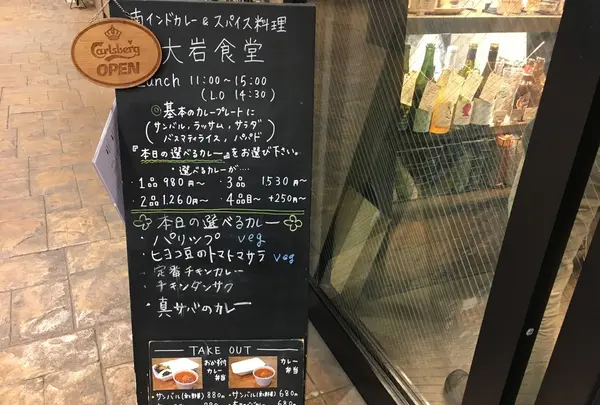 Carlsberg
OPEN
南インドカレー&スパイス料理
大岩食堂
Lunch 11:00～15:00
(L.O 14:30)
◎基本のカレープレートに
(サンバル,ラッサム,サラダ
バスマティライス,パパド)
『本日の選べるカレー』をお選び下さい。
・選べるカレーが‥‥
・1品 980円～ ・3品 1530円～
・2品 1,260円～ ・4品目～ +250円～
本日の選べるカレー
・パリップ veg
・ヒヨコ豆のトマトマサラ veg
・定番チキンカレー
・チキンダンサク
・真サバのカレー
TAKE OUT
おかず付カレー弁当
カレー弁当
・サンバル 880円
・サンバル 680円